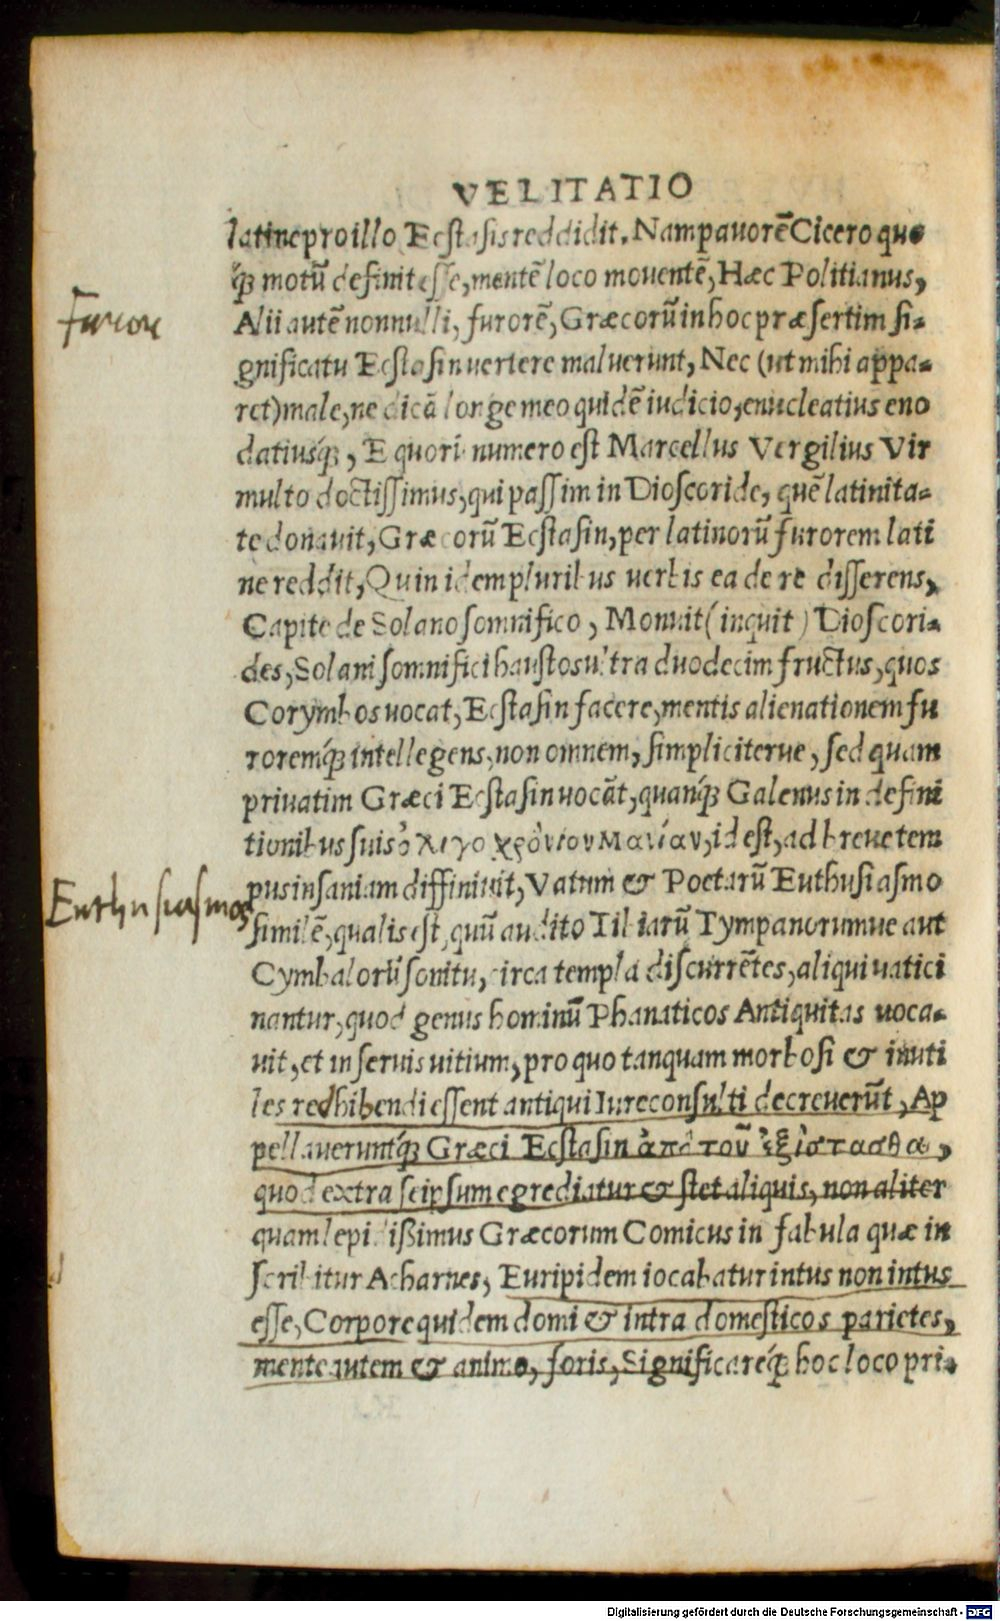 VELITATIO
latine pro illo Ecstasis reddidit. Nam pauorē Cicero quo
q́; motū definit esse, mentē loco mouentē, Hæc Politianus,
Furore
Alii autē nonnulli, furorē, Græcorū in hoc præsertim si-
gnificatu Ecstasin uertere maluerunt, Nec (ut mihi appa-
ret) male, ne dicā longe meo quidē iudicio, enucleatius eno
datiusq́;, E quorū numero est Marcellus Vergilius Vir
multo doctissimus, qui passim in Dioscoride, quē latinita-
te donauit, Græcorū Ecstasin, per latinorū furorem lati
ne reddit, Quin idem pluribus uerbis ea de re disserens,
Capite de Solano somnifico, Monuit (inquit) Dioscori-
des, Solani somnifici haustos ultra duodecim fructus, quos
Corymbos uocat, Ecstasin facere, mentis alienationem fu
roremq́; intellegens, non omnem, simpliciterue, sed quam
priuatim Græci Ecstasin uocāt, quanq́; Galenus in defini
tionibus suis ὀλιγοχρόνιον μανίαν, id est, ad breue tem
Enthusiasmos
pus insaniam diffiniuit, Vatum & Poetarū Enthusiasmo
similē, qualis est, quū audito Tibiarū Tympanorumue aut
Cymbalorū sonitu, circa templa discurrētes, aliqui uatici
nantur, quod genus hominū Phanaticos Antiquitas uoca-
uit, et in seruis uitium, pro quo tanquam morbosi & inuti
les redhibendi essent antiqui Iureconsulti decreuerūt, Ap
pellaueruntq́; Græci Ecstasin ἀπὸ τοῦ ἐξίστασθαι,
quod extra seipsum egrediatur & stet aliquis, non aliter
quam lepidißimus Græcorum Comicus in fabula quæ in
scribitur Acharnes, Euripidem iocabatur intus non intus
esse, Corpore quidem domi & intra domesticos parietes,
mente autem & animo, foris, Significareq́; hoc loco pri-
Digitalisierung gefördert durch die Deutsche Forschungsgemeinschaft - DFG